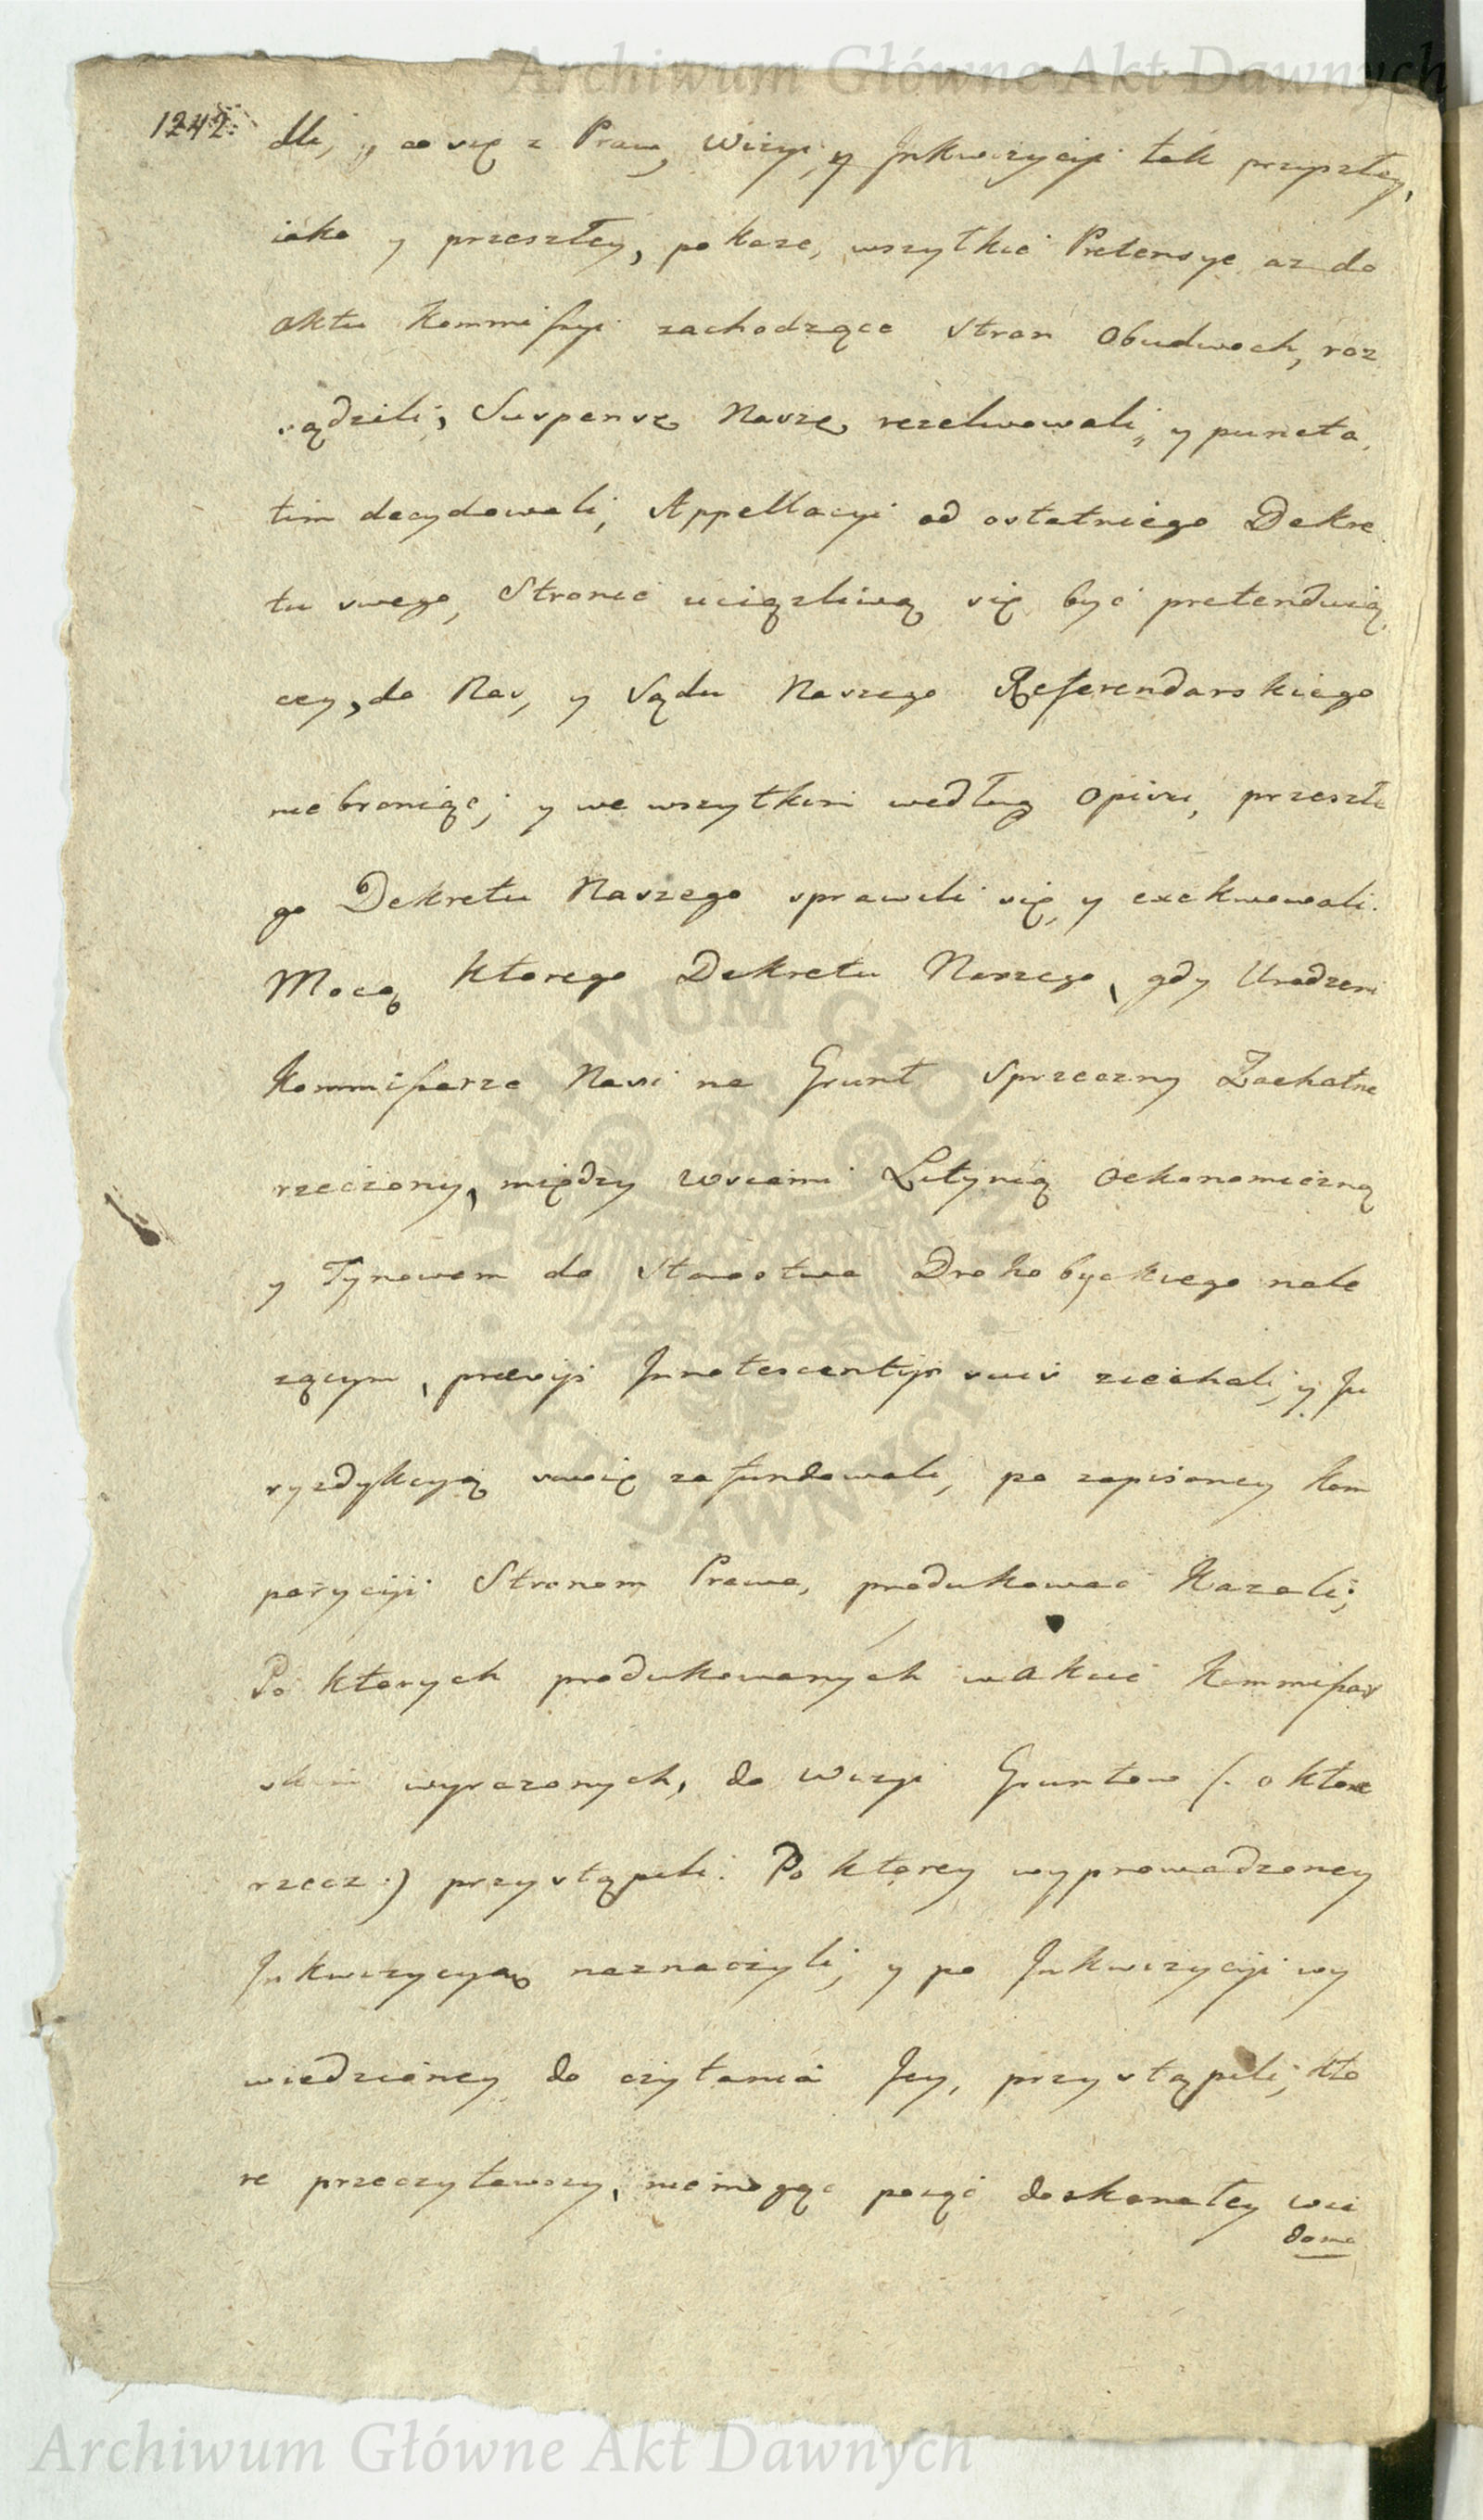 Archiwum Główne Akt Dawnych
1242.
dli, y co się z Praw, Wizyi, y Inkwizycyi tak przyszłey,
iako y przeszłey, pokaze, wszytkie Pretensye az do
aktu Kommissyi zachodzące Stron Obudwoch, roz
sądzili; Suspensę Naszę rezolwowali, y puncta
tim decydowali, Appellacyi od ostatniego Dekre
tu swego, Stronie uciązliwą się być pretenduią
cey, do Nas, y Sądu Naszego Referendarskiego
niebroniąc; y we wszytkim według opisu, przeszłe
go Dekretu Naszego sprawili się, y exekwowali.
Mocą ktorego Dekretu Naszego, gdy Urodzeni
Kommissarze Nasi na Grunt Sprzeczny Zachatne
rzeczony, między wsiami Letynią Oekonomiczną
y Tynowem do Starostwa Drohobyckiego nale
zącym, prævijs Innotescentijs suis ziechali, y Ju
ryzdykcyą swoię zafundowali, po zapisaney Kom
parycyi Stronom Prawa, produkować Kazali;
Po ktorych produkowanych w Akcie Kommissar
skim wyrazonych, do Wizyi Gruntow (. o ktore
rzecz .) przystąpili. Po ktorey wyprowadzoney
Inkwizycyą naznaczyli, y po Inkwizycyi wy
wiedzioney do czytania Jey, przystąpili, kto
re przeczytawszy, niemogąc powziąć doskonałey wia
domo
ARCHIWUM GŁÓWNE AKT DAWNYCH
Archiwum Główne Akt Dawnych